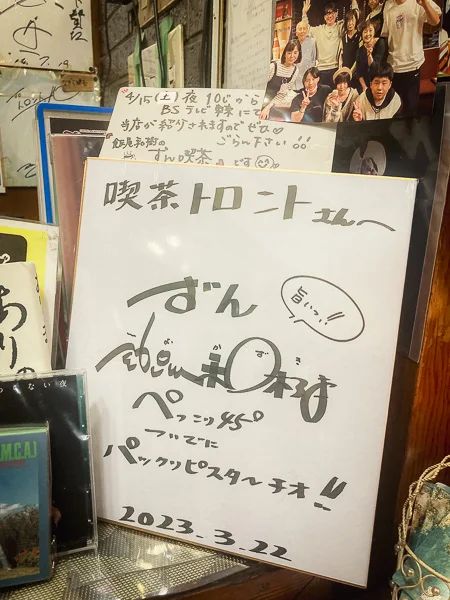 4/15(土)夜10じから
BSテレビ東京にて
当店が紹介されますのでぜひ♡
飯尾和樹の ごらん下さい!!
ずん喫茶 です
喫茶トロントさんへ
ずん
旨いっ!!
飯尾和樹
かずき
ぺっこり45°
ついでに
パックリピスターチオ!!
2023.3.22
ありの
ない夜
M.C.A]